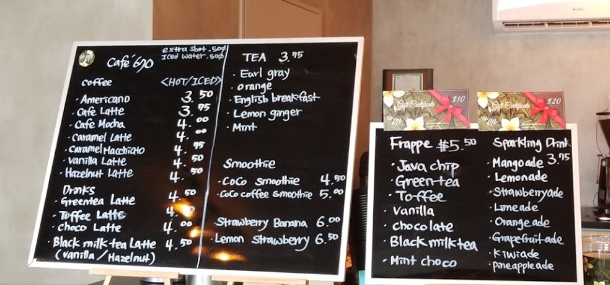 Café 690
extra shot .50¢
Iced water .50¢
coffee <HOT/ICED>
· Americano 3.50
· Cafe Latte 3.75
· Cafe Mocha 4.00
· Caramel Latte 4.
· Caramel Macchiato 4.75
· Vanilla Latte 4.50
· Hazelnut Latte 4.50
Drinks
· Greentea Latte 4.50
· Toffee Latte 4.50
· Choco Latte 4.00
· Black milk tea Latte 4.50
(vanilla / Hazelnut)
TEA 3.75
· Earl gray
· orange
· English breakfast
· Lemon ginger
· Mint
Smoothie
· CoCo smoothie 4.50
· CoCo coffee smoothie 5.00
· Strawberry Banana 6.00
· Lemon Strawberry 6.50
Gift Certificate $10
Gift Certificate $20
Frappe $5.50
· Java chip
· Green tea
· Toffee
· Vanilla
· chocolate
· Black milk tea
· Mint choco
Sparkling Drink
· Mangoade 3.75
· Lemonade
· Strawberryade
· Limeade
· Orangeade
· Grapefruitade
· Kiwiade
· pineappleade